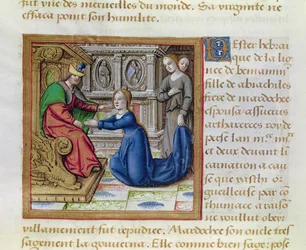 fut vne des merveilles du monde. Sa virginite ne
effaca point son humilite.
Ester hebrai
que de la lig
nee de beniamin
fille de abiachiles
niece de mardochee
espousa assuerus
arthaxerces roy de
perse lan
et deux devant li
carnation a cau
se que vasthi or
gueilleuse par co
thumace a raiso
ne voullut obey
villainement fut repudiee. Mardochee son oncle tres
sagement la gouverna. Elle comme bien sage: pose